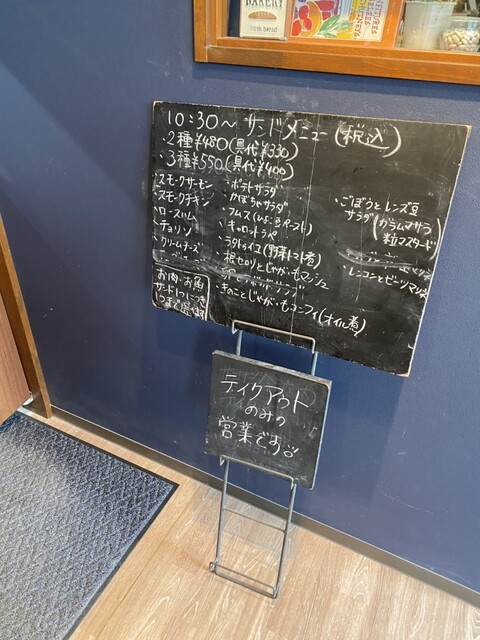 BAKERY
10:30〜 サンドメニュー(税込)
・2種¥480(具代¥330)
・3種¥550(具代¥400)
・スモークサーモン
・スモークチキン
・ロースハム
・チョリソ
・クリームチーズ
お肉・お魚
サンド1つにつき
1つまで
・ポテトサラダ
・かぼちゃサラダ
・フムス(ひよこ豆ペースト)
・キャロットラペ
・ラタトゥイユ(野菜トマト煮)
・根セロリとじゃがいもマッシュ
・きのことじゃがいもコンフィ(オイル煮)
・ごぼうとレンズ豆
サラダ(ガラムマサラ
粒マスタード)
・レンコンとビーツマリネ
テイクアウト
のみの
営業です